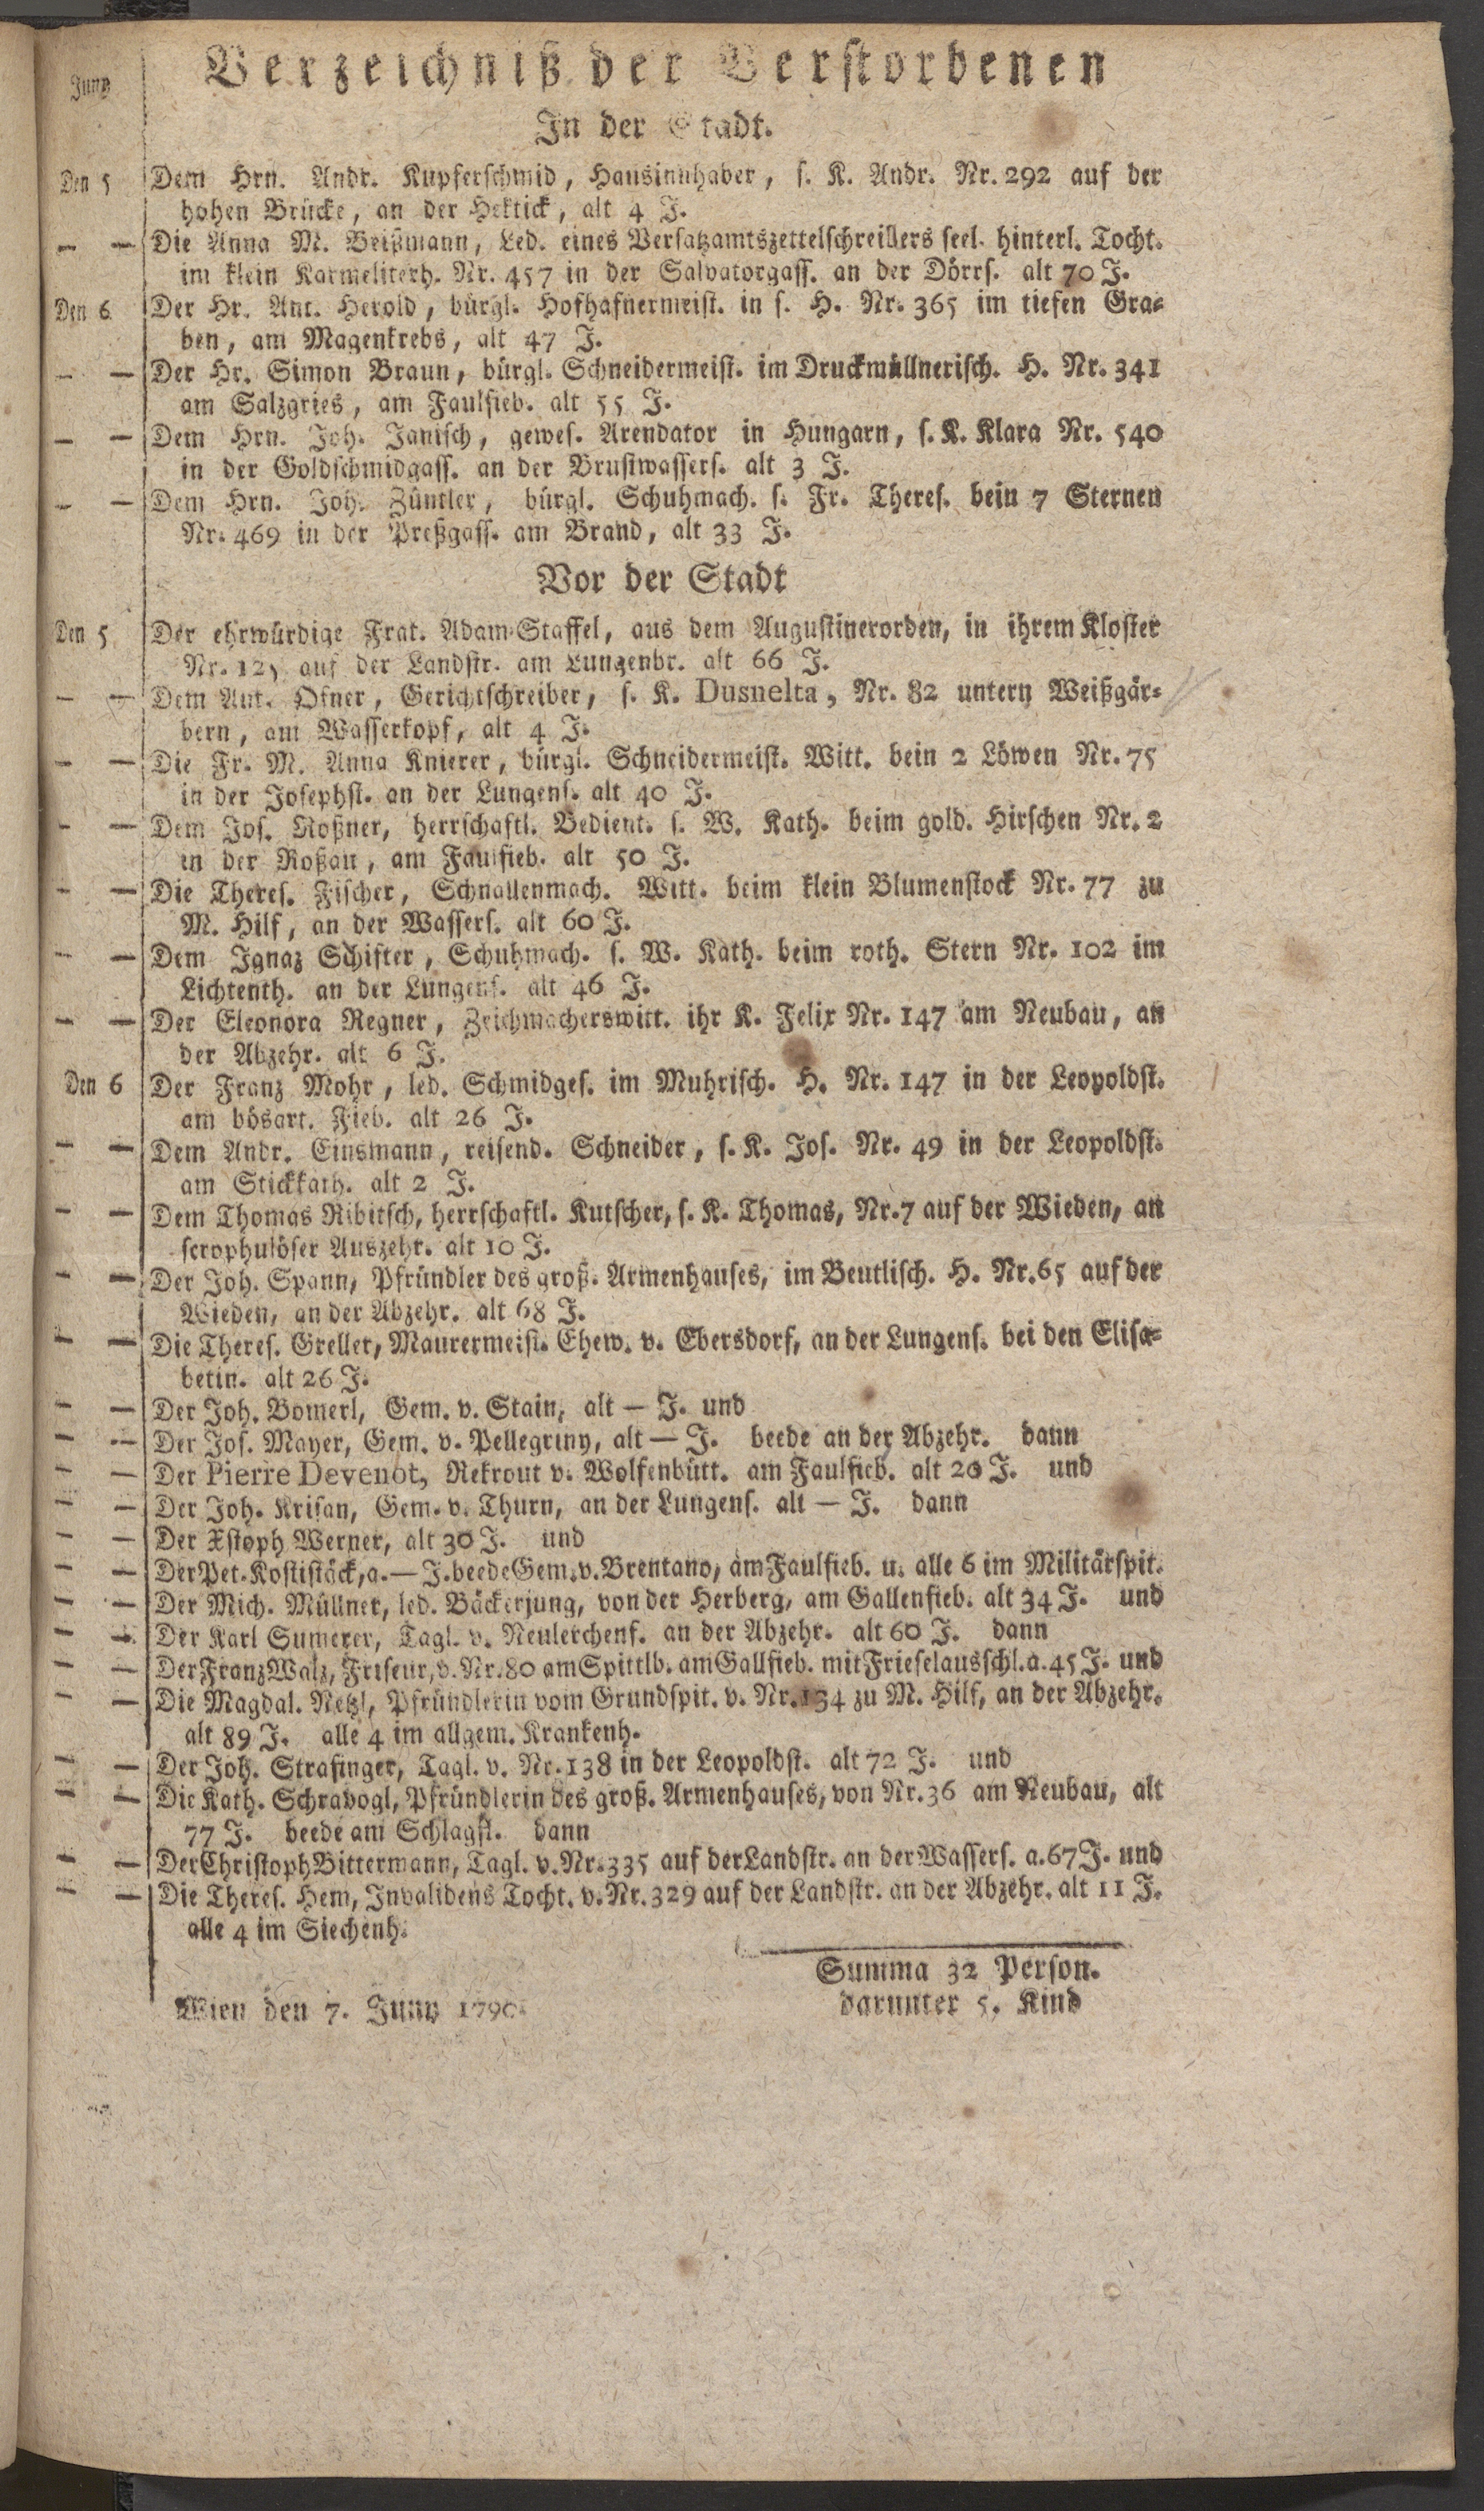 Juny
Verzeichniß der Verstorbenen
In der Stadt.
Den 5 Dem Hrn. Andr. Kupferschmid, Hausinnhaber, s. K. Andr. Nr. 292 auf der
hohen Brücke, an der Hektick, alt 4 J.
— — Die Anna M. Beißmann, Led. eines Versatzamtszettelschreibers seel. hinterl. Tocht.
im klein Karmeliterh. Nr. 457 in der Salvatorgass. an der Dörrs. alt 70 J.
Den 6 Der Hr. Ant. Herold, bürgl. Hofhafnermeist. in s. H. Nr. 365 im tiefen Gra-
ben, am Magenkrebs, alt 47 J.
— — Der Hr. Simon Braun, bürgl. Schneidermeist. im Druckmüllnerisch. H. Nr. 341
am Salzgries, am Faulfieb. alt 55 J.
— — Dem Hrn. Joh. Janisch, gewes. Arendator in Hungarn, s. K. Klara Nr. 540
in der Goldschmidgass. an der Brustwassers. alt 3 J.
— — Dem Hrn. Joh. Züntler, bürgl. Schuhmach. s. Fr. Theres. bein 7 Sternen
Nr. 469 in der Preßgass. am Brand, alt 33 J.
Vor der Stadt
Den 5 Der ehrwürdige Frat. Adam Staffel, aus dem Augustinerorden, in ihrem Kloster
Nr. 125 auf der Landstr. am Lungenbr. alt 66 J.
— — Dem Ant. Ofner, Gerichtschreiber, s. K. Dusnelta, Nr. 82 untern Weißgär-
bern, am Wasserkopf, alt 4 J.
— — Die Fr. M. Anna Knierer, bürgl. Schneidermeist. Witt. bein 2 Löwen Nr. 75
in der Josephst. an der Lungens. alt 40 J.
— — Dem Jos. Roßner, herrschaftl. Bedient. s. W. Kath. beim gold. Hirschen Nr. 2
in der Roßau, am Faulfieb. alt 50 J.
— — Die Theres. Fischer, Schnallenmach. Witt. beim klein Blumenstock Nr. 77 zu
M. Hilf, an der Wassers. alt 60 J.
— — Dem Ignaz Schifter, Schuhmach. s. W. Kath. beim roth. Stern Nr. 102 im
Lichtenth. an der Lungens. alt 46 J.
— — Der Eleonora Regner, Zeichmacherswitt. ihr K. Felix Nr. 147 am Neubau, an
der Abzehr. alt 6 J.
Den 6 Der Franz Mohr, led. Schmidges. im Muhrisch. H. Nr. 147 in der Leopoldst.
am bösart. Fieb. alt 26 J.
— — Dem Andr. Einsmann, reisend. Schneider, s. K. Jos. Nr. 49 in der Leopoldst.
am Stickkath. alt 2 J.
— — Dem Thomas Ribitsch, herrschaftl. Kutscher, s. K. Thomas, Nr. 7 auf der Wieden, an
scrophulöser Auszehr. alt 10 J.
— — Der Joh. Spann, Pfründler des groß. Armenhauses, im Beutlisch. H. Nr. 65 auf der
Wieden, an der Abzehr. alt 68 J.
— — Die Theres. Greller, Maurermeist. Ehew. v. Ebersdorf, an der Lungens. bei den Elisa-
betin. alt 26 J.
— — Der Joh. Bomerl, Gem. v. Stain, alt — J. und
— — Der Jos. Mayer, Gem. v. Pellegriny, alt — J. beede an der Abzehr. dann
— — Der Pierre Devenot, Rekrout v. Wolfenbütt. am Faulfieb. alt 20 J. und
— — Der Joh. Krisan, Gem. v. Thurn, an der Lungens. alt — J. dann
— — Der Xstoph Werner, alt 30 J. und
— — Der Pet. Kostistäck, a. — J. beede Gem. v. Brentano, am Faulfieb. u. alle 6 im Militärspit.
— — Der Mich. Müllner, led. Bäckerjung, von der Herberg, am Gallenfieb. alt 34 J. und
— — Der Karl Sumerer, Tagl. v. Neulerchenf. an der Abzehr. alt 60 J. dann
— — Der Franz Walz, Friseur, v. Nr. 80 am Spittlb. am Gallfieb. mit Frieselausschl. a. 45 J. und
— — Die Magdal. Netzl, Pfründlerin vom Grundspit. v. Nr. 134 zu M. Hilf, an der Abzehr.
alt 89 J. alle 4 im allgem. Krankenh.
— — Der Joh. Strafinger, Tagl. v. Nr. 138 in der Leopoldst. alt 72 J. und
— — Die Kath. Schravogl, Pfründlerin des groß. Armenhauses, von Nr. 36 am Neubau, alt
77 J. beede am Schlagfl. dann
— — Der Christoph Bittermann, Tagl. v. Nr. 335 auf der Landstr. an der Wassers. a. 67 J. und
— — Die Theres. Hem, Invalidens Tocht. v. Nr. 329 auf der Landstr. an der Abzehr. alt 11 J.
alle 4 im Siechenh.
Summa 32 Person.
darunter 5. Kind
Wien den 7. Juny 1790.